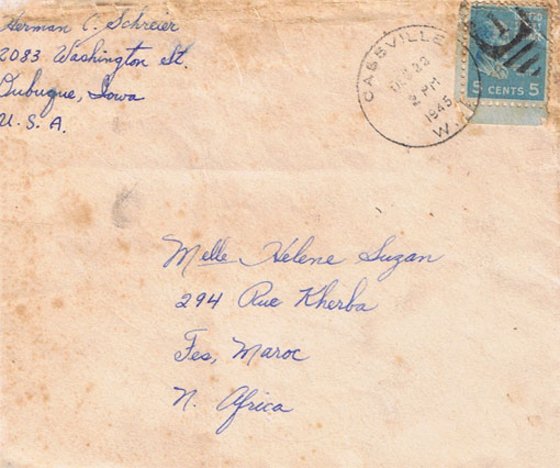 Herman C. Schreier
2083 Washington St.
Dubuque, Iowa
U. S. A.
CASSVILLE
DEC 22
2 PM
1945
W
5 CENTS 5
Melle Helene Suzan
294 Rue Kherba
Fes, Maroc
N. Africa